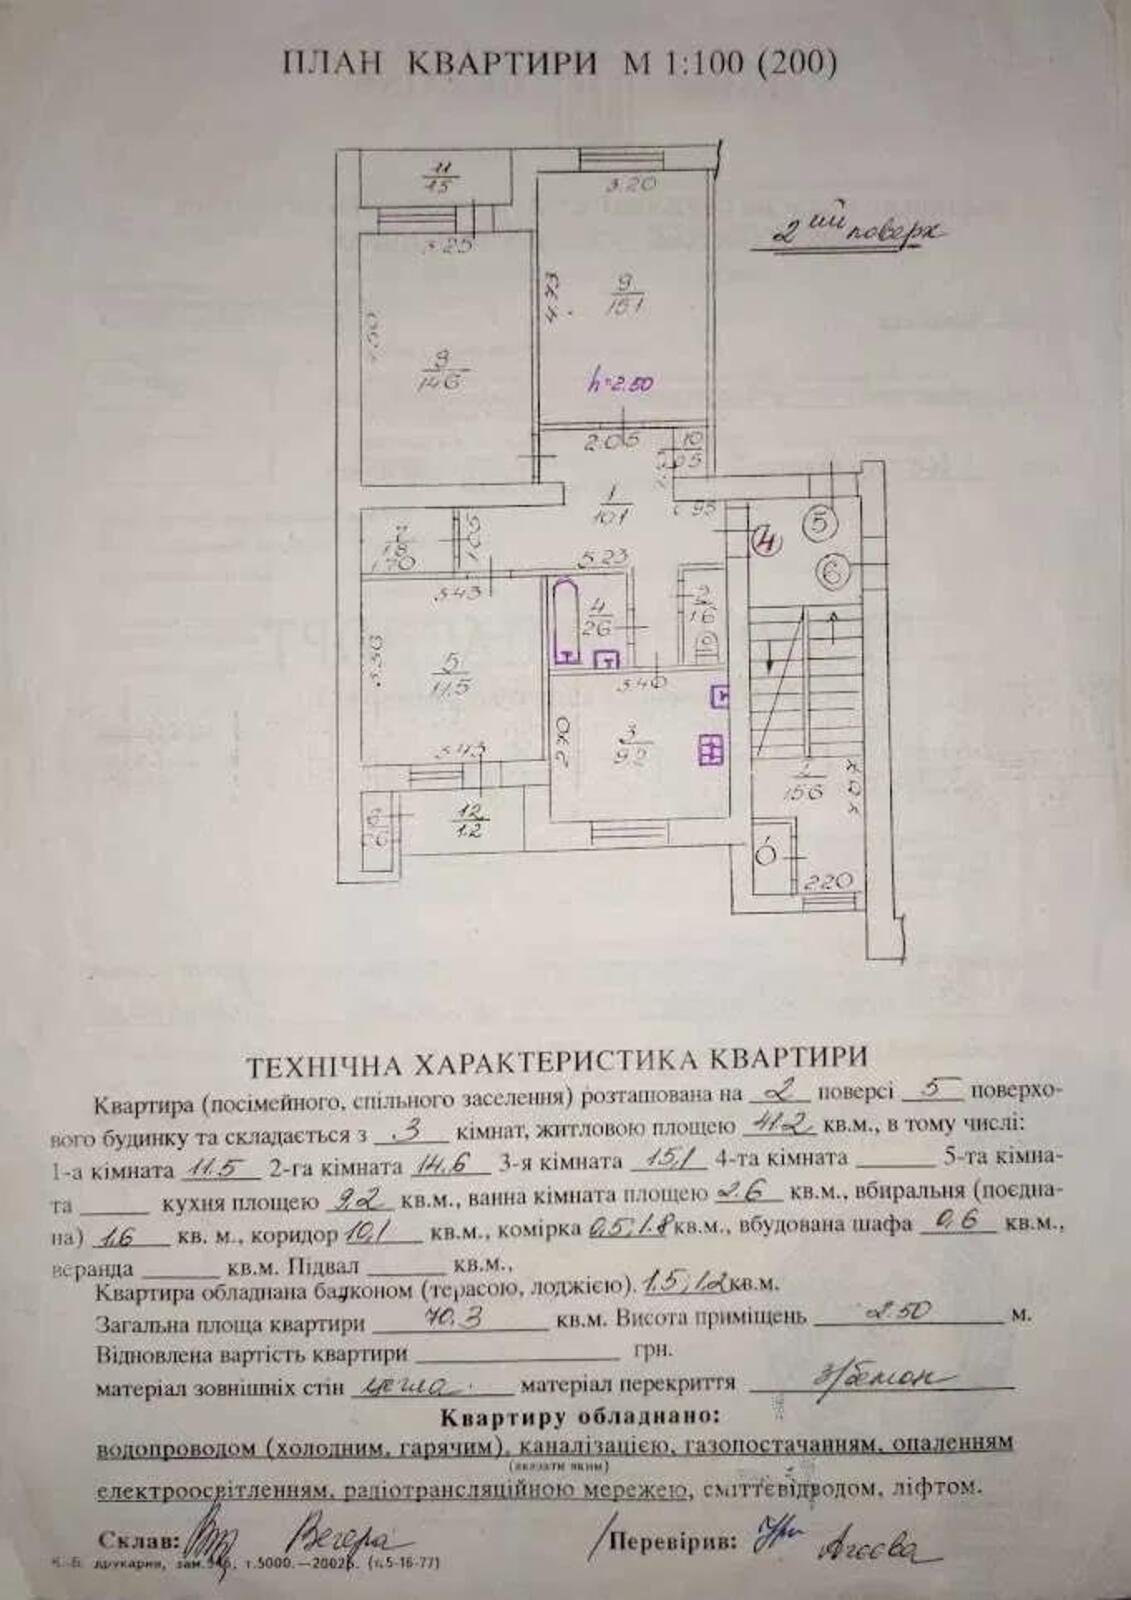 ПЛАН КВАРТИРИ М 1:100 (200)
11
1.5
3.20
2ий поверх
3.25
4.73
9
15.1
9
14.6
h=2.50
2.05
10
1
10.1
4
5
6
7
1.8
1.70
1.05
5.23
3.43
4
2.6
2
1.6
3.30
5
11.5
3.40
2.70
3
9.2
3.43
1
15.6
12
1.2
2.20
ТЕХНІЧНА ХАРАКТЕРИСТИКА КВАРТИРИ
Квартира (посімейного, спільного заселення) розташована на 2 поверсі 5 поверхо-
вого будинку та складається з 3 кімнат, житловою площею 41.2 кв.м., в тому числі:
1-а кімната 11.5 2-га кімната 14.6 3-я кімната 15,1 4-та кімната ______ 5-та кімна-
та ______ кухня площею 9,2 кв.м., ванна кімната площею 2.6 кв.м., вбиральня (поєдна-
на) 1.6 кв. м., коридор 10,1 кв.м., комірка 0,5; 1.8 кв.м., вбудована шафа 0,6 кв.м.,
веранда ______ кв.м. Підвал ______ кв.м.,
Квартира обладнана балконом (терасою, лоджією). 1.5; 1.2 кв.м.
Загальна площа квартири 70.3 кв.м. Висота приміщень 2.50 м.
Відновлена вартість квартири ______ грн.
матеріал зовнішніх стін цегла матеріал перекриття з/бетон
Квартиру обладнано:
водопроводом (холодним, гарячим), каналізацією, газопостачанням, опаленням
(вказати яким)
електроосвітленням, радіотрансляційною мережею, сміттєвідводом, ліфтом.
Склав: Вегера /Перевірив: Агєєва
К.-Б. друкарня, зам. т.5000.—2002р. (т.5-16-77)